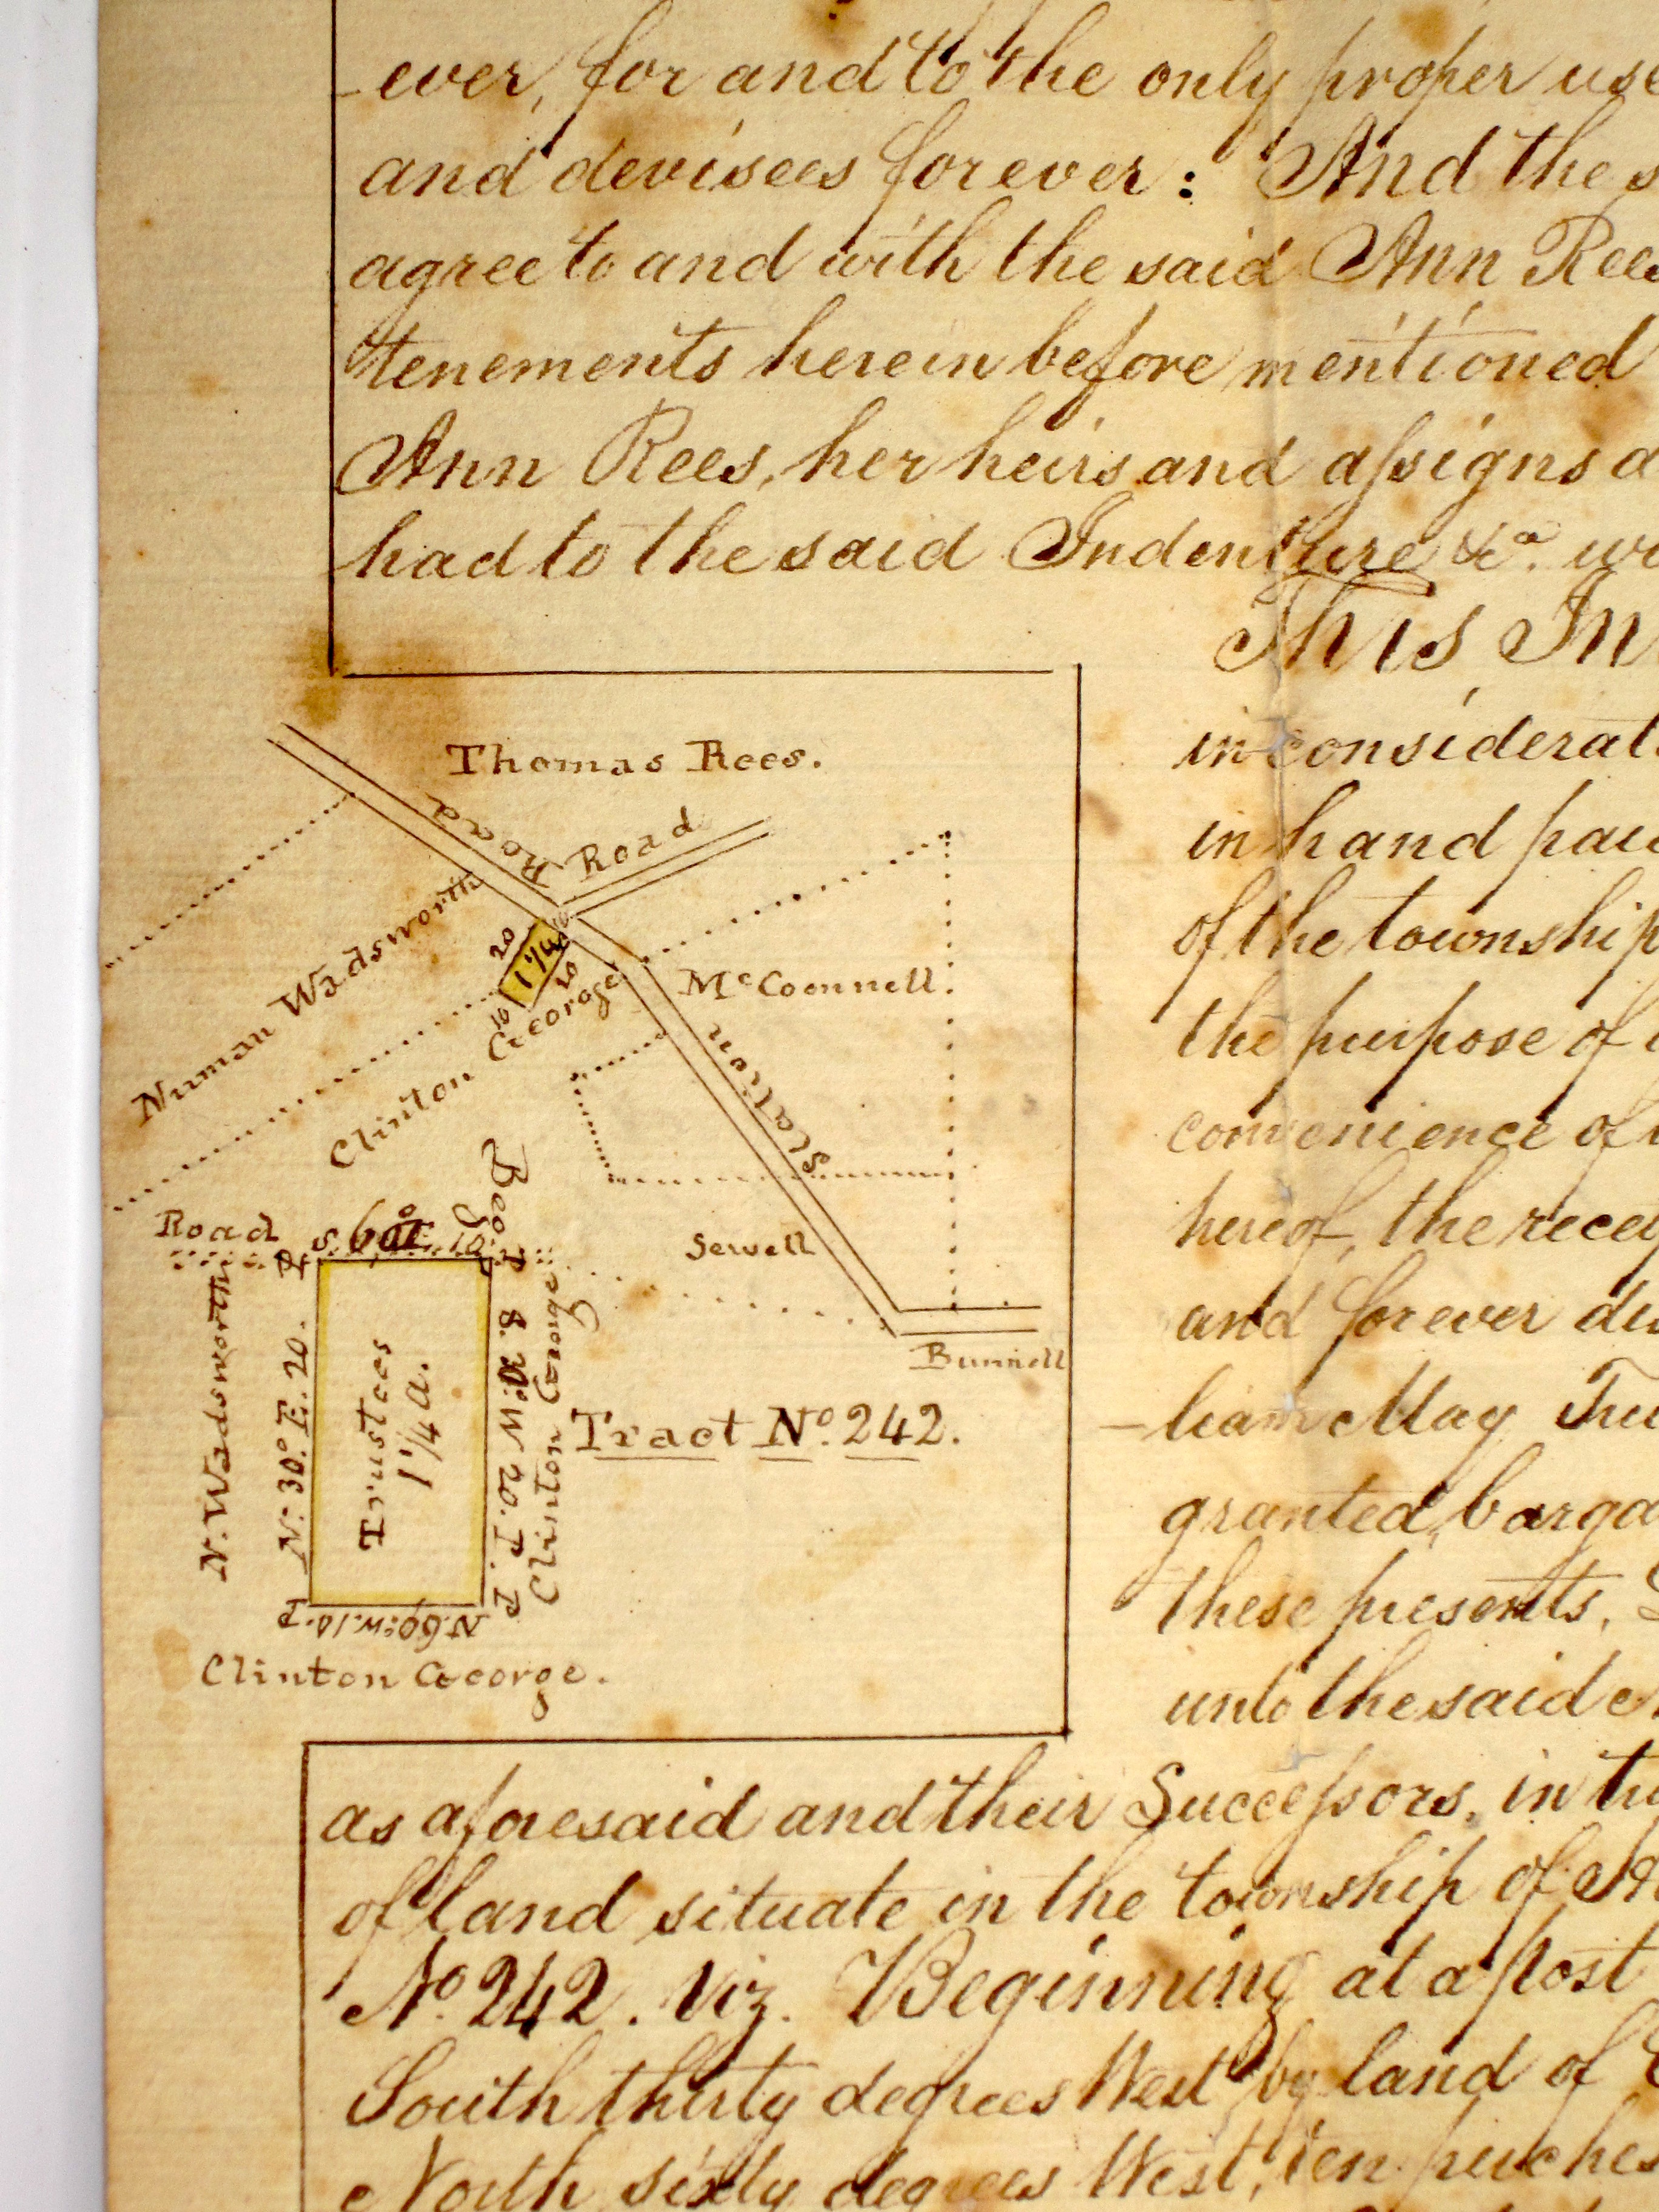 ever, for and to the only proper use
and devisees forever: And the s
agree to and with the said Ann Rees
tenements herein before mentioned
Ann Rees, her heirs and assigns a
had to the said Indenture &c.a
This In
in considerat
in hand paid
of the township
the purpose of
convenience of
hereof, the recei
and forever dis
liam May Tru
granted, barga
these presents,
unto the said
Thomas Rees.
Road
Road
Numan Wadsworth
20
1 1/4
10
Clinton George
McConnell.
Station
Road
S. 60° E. 10
Beg.
P
P
Sewell
Bunnell
N. Wadsworth
N. 30° E. 20.
Trustees
1 1/4 a.
S. 30° W 20. P.
Clinton George
Tract No. 242.
P
P
N. 60° W. 10.
Clinton George.
as aforesaid and their Successors, in tru
of land situate in the township of
No 242. Viz. Beginning at a post
South thirty degrees West by land of
North sixty degrees West, ten perches